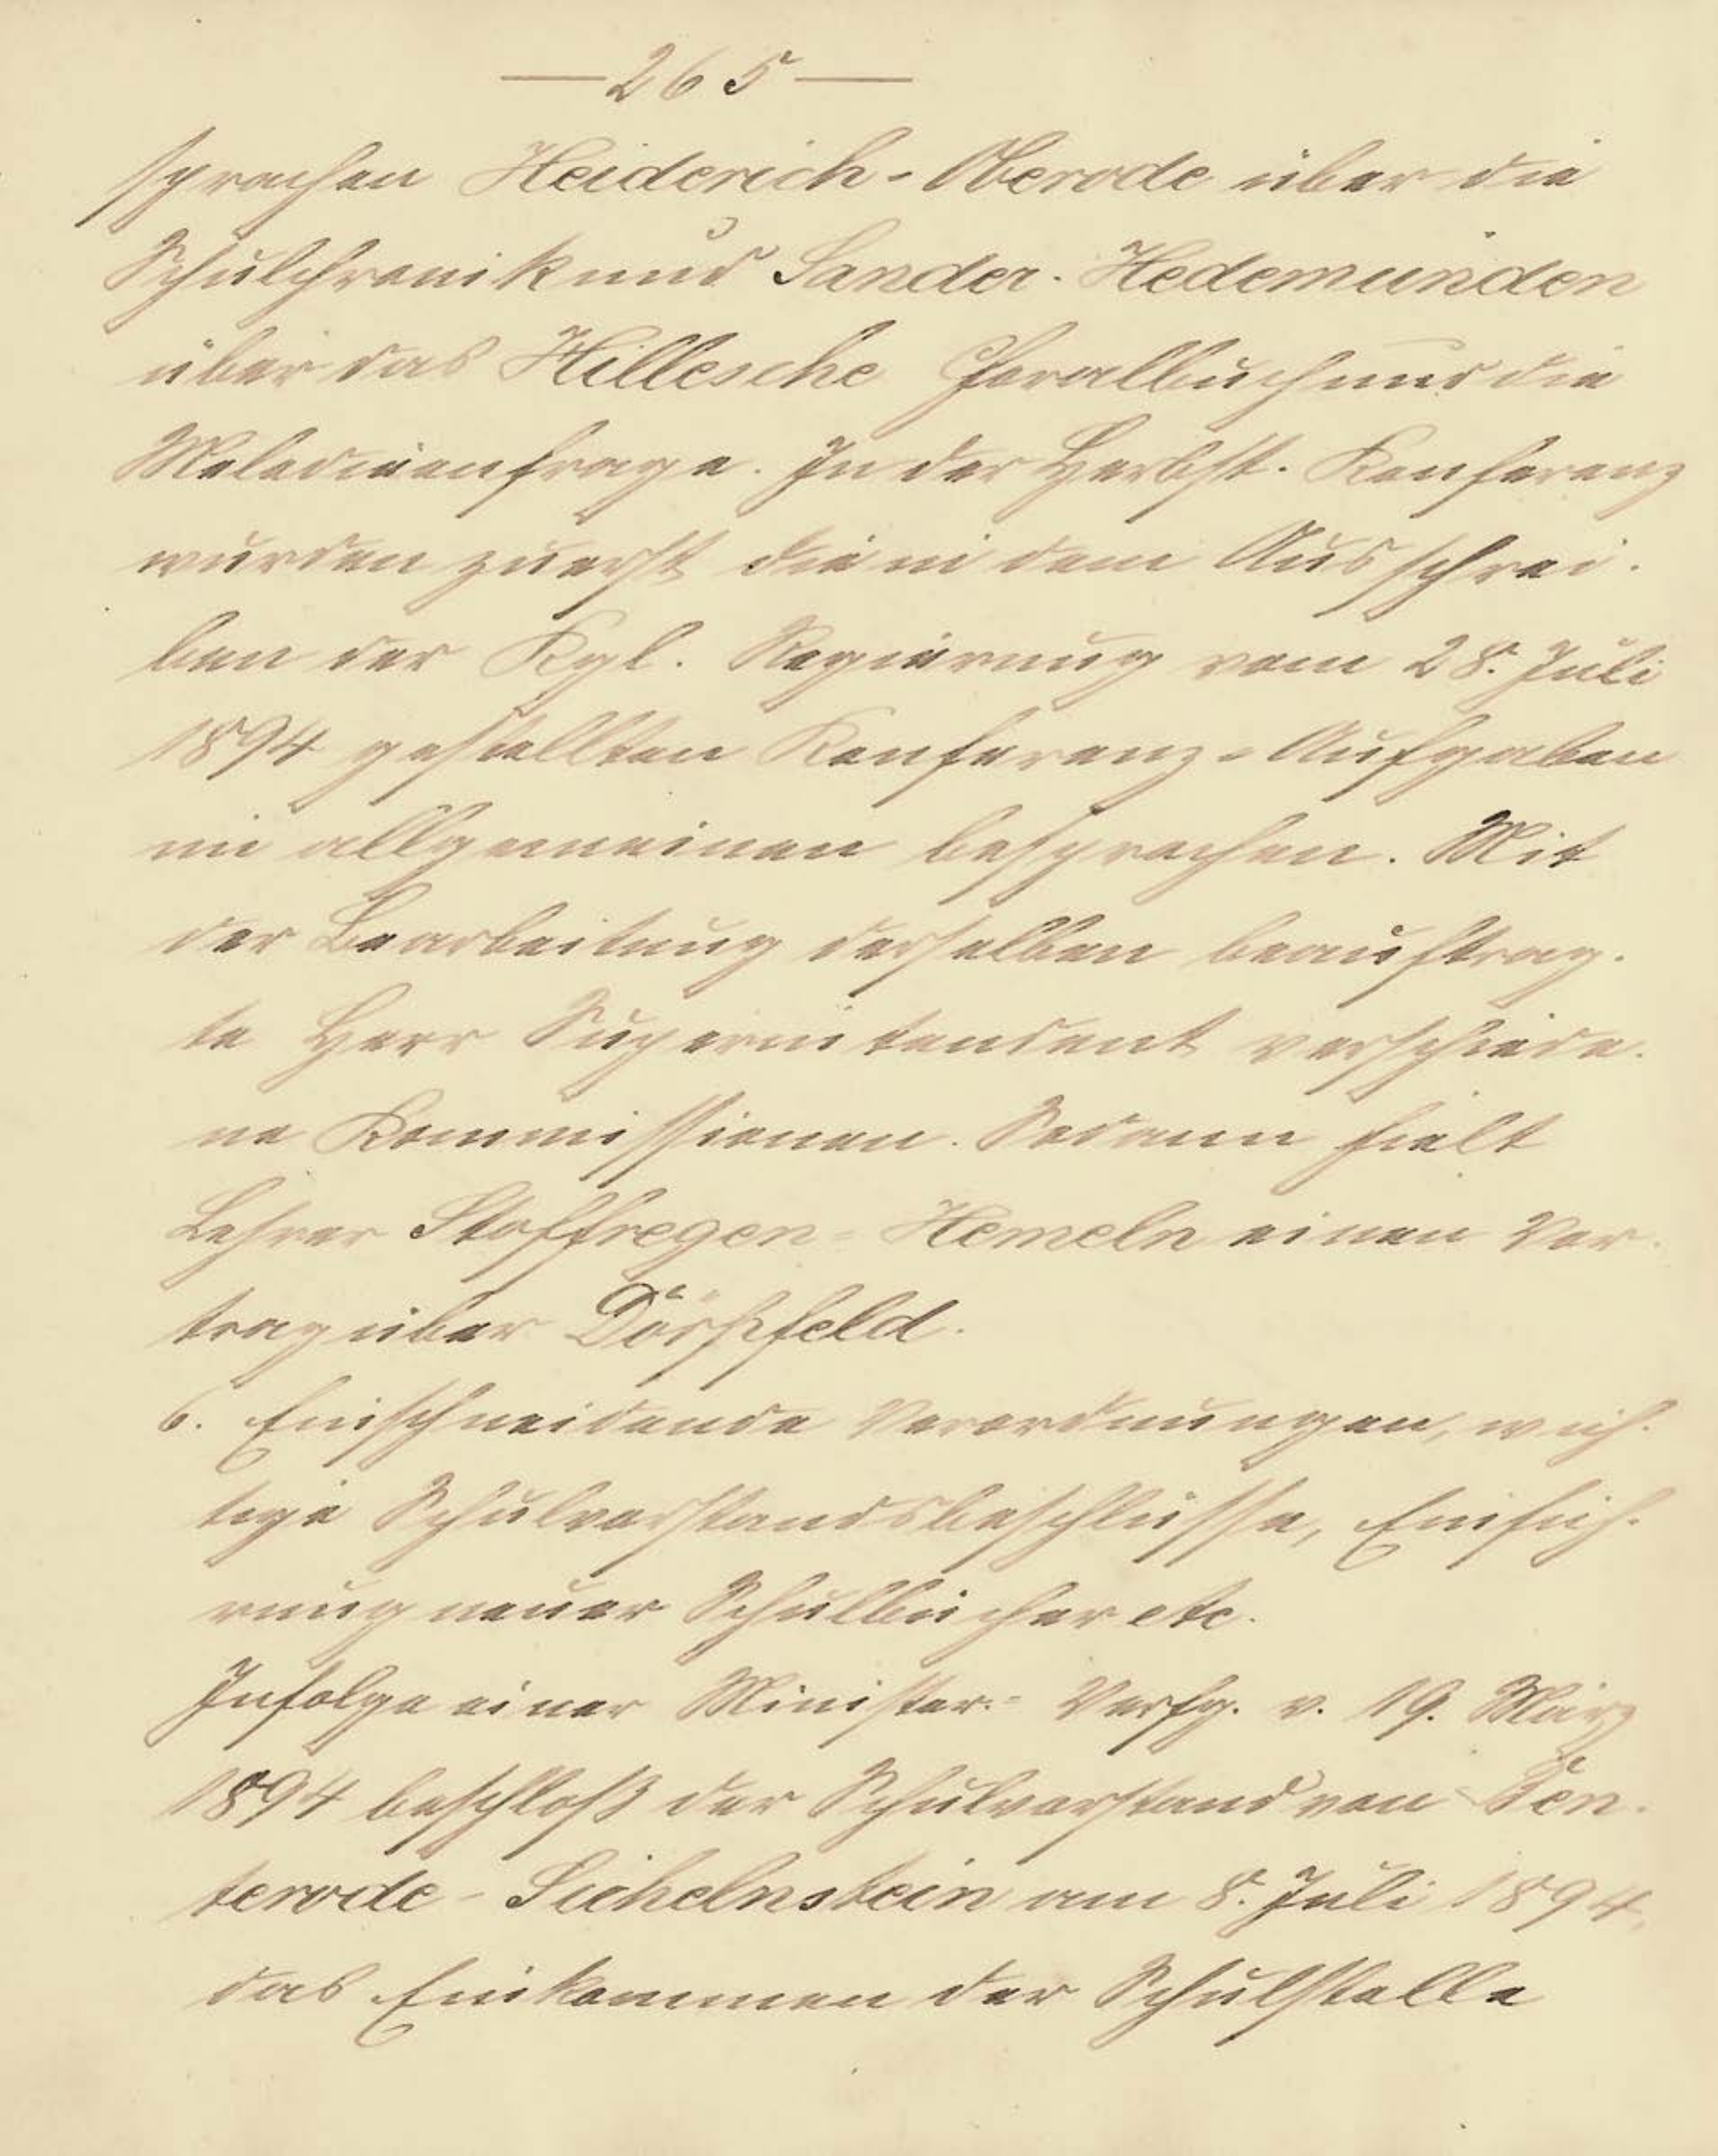 — 265 —
sprachen Heiderich-Oberode über die
Schulchronik und Sander-Hedemünden
über das Hillesche Choralbuch und die
Melodieenfrage. In der Herbst-Konferenz
wurden zuerst die in dem Ausschrei-
ben der Kgl. Regierung vom 28. Juli
1894 gestellten Konferenz-Aufgaben
im allgemeinen besprochen. Mit
der Bearbeitung derselben beauftrag-
te Herr Superintendent verschiede-
ne Kommissionen. Sodann hielt
Lehrer Stoffregen-Hemeln einen Vor-
trag über Dörpfeld.
6. Einschneidende Verordnungen, wich-
tige Schulvorstandsbeschlüsse, Einfüh-
rung neuer Schulbücher etc.
Infolge einer Minister.-Verfg. v. 19. März
1894 beschloß der Schulvorstand von Ben-
terode-Sichelnstein am 8. Juli 1894,
das Einkommen der Schulstelle